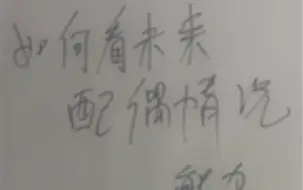 如何看未来
配偶情况
能力